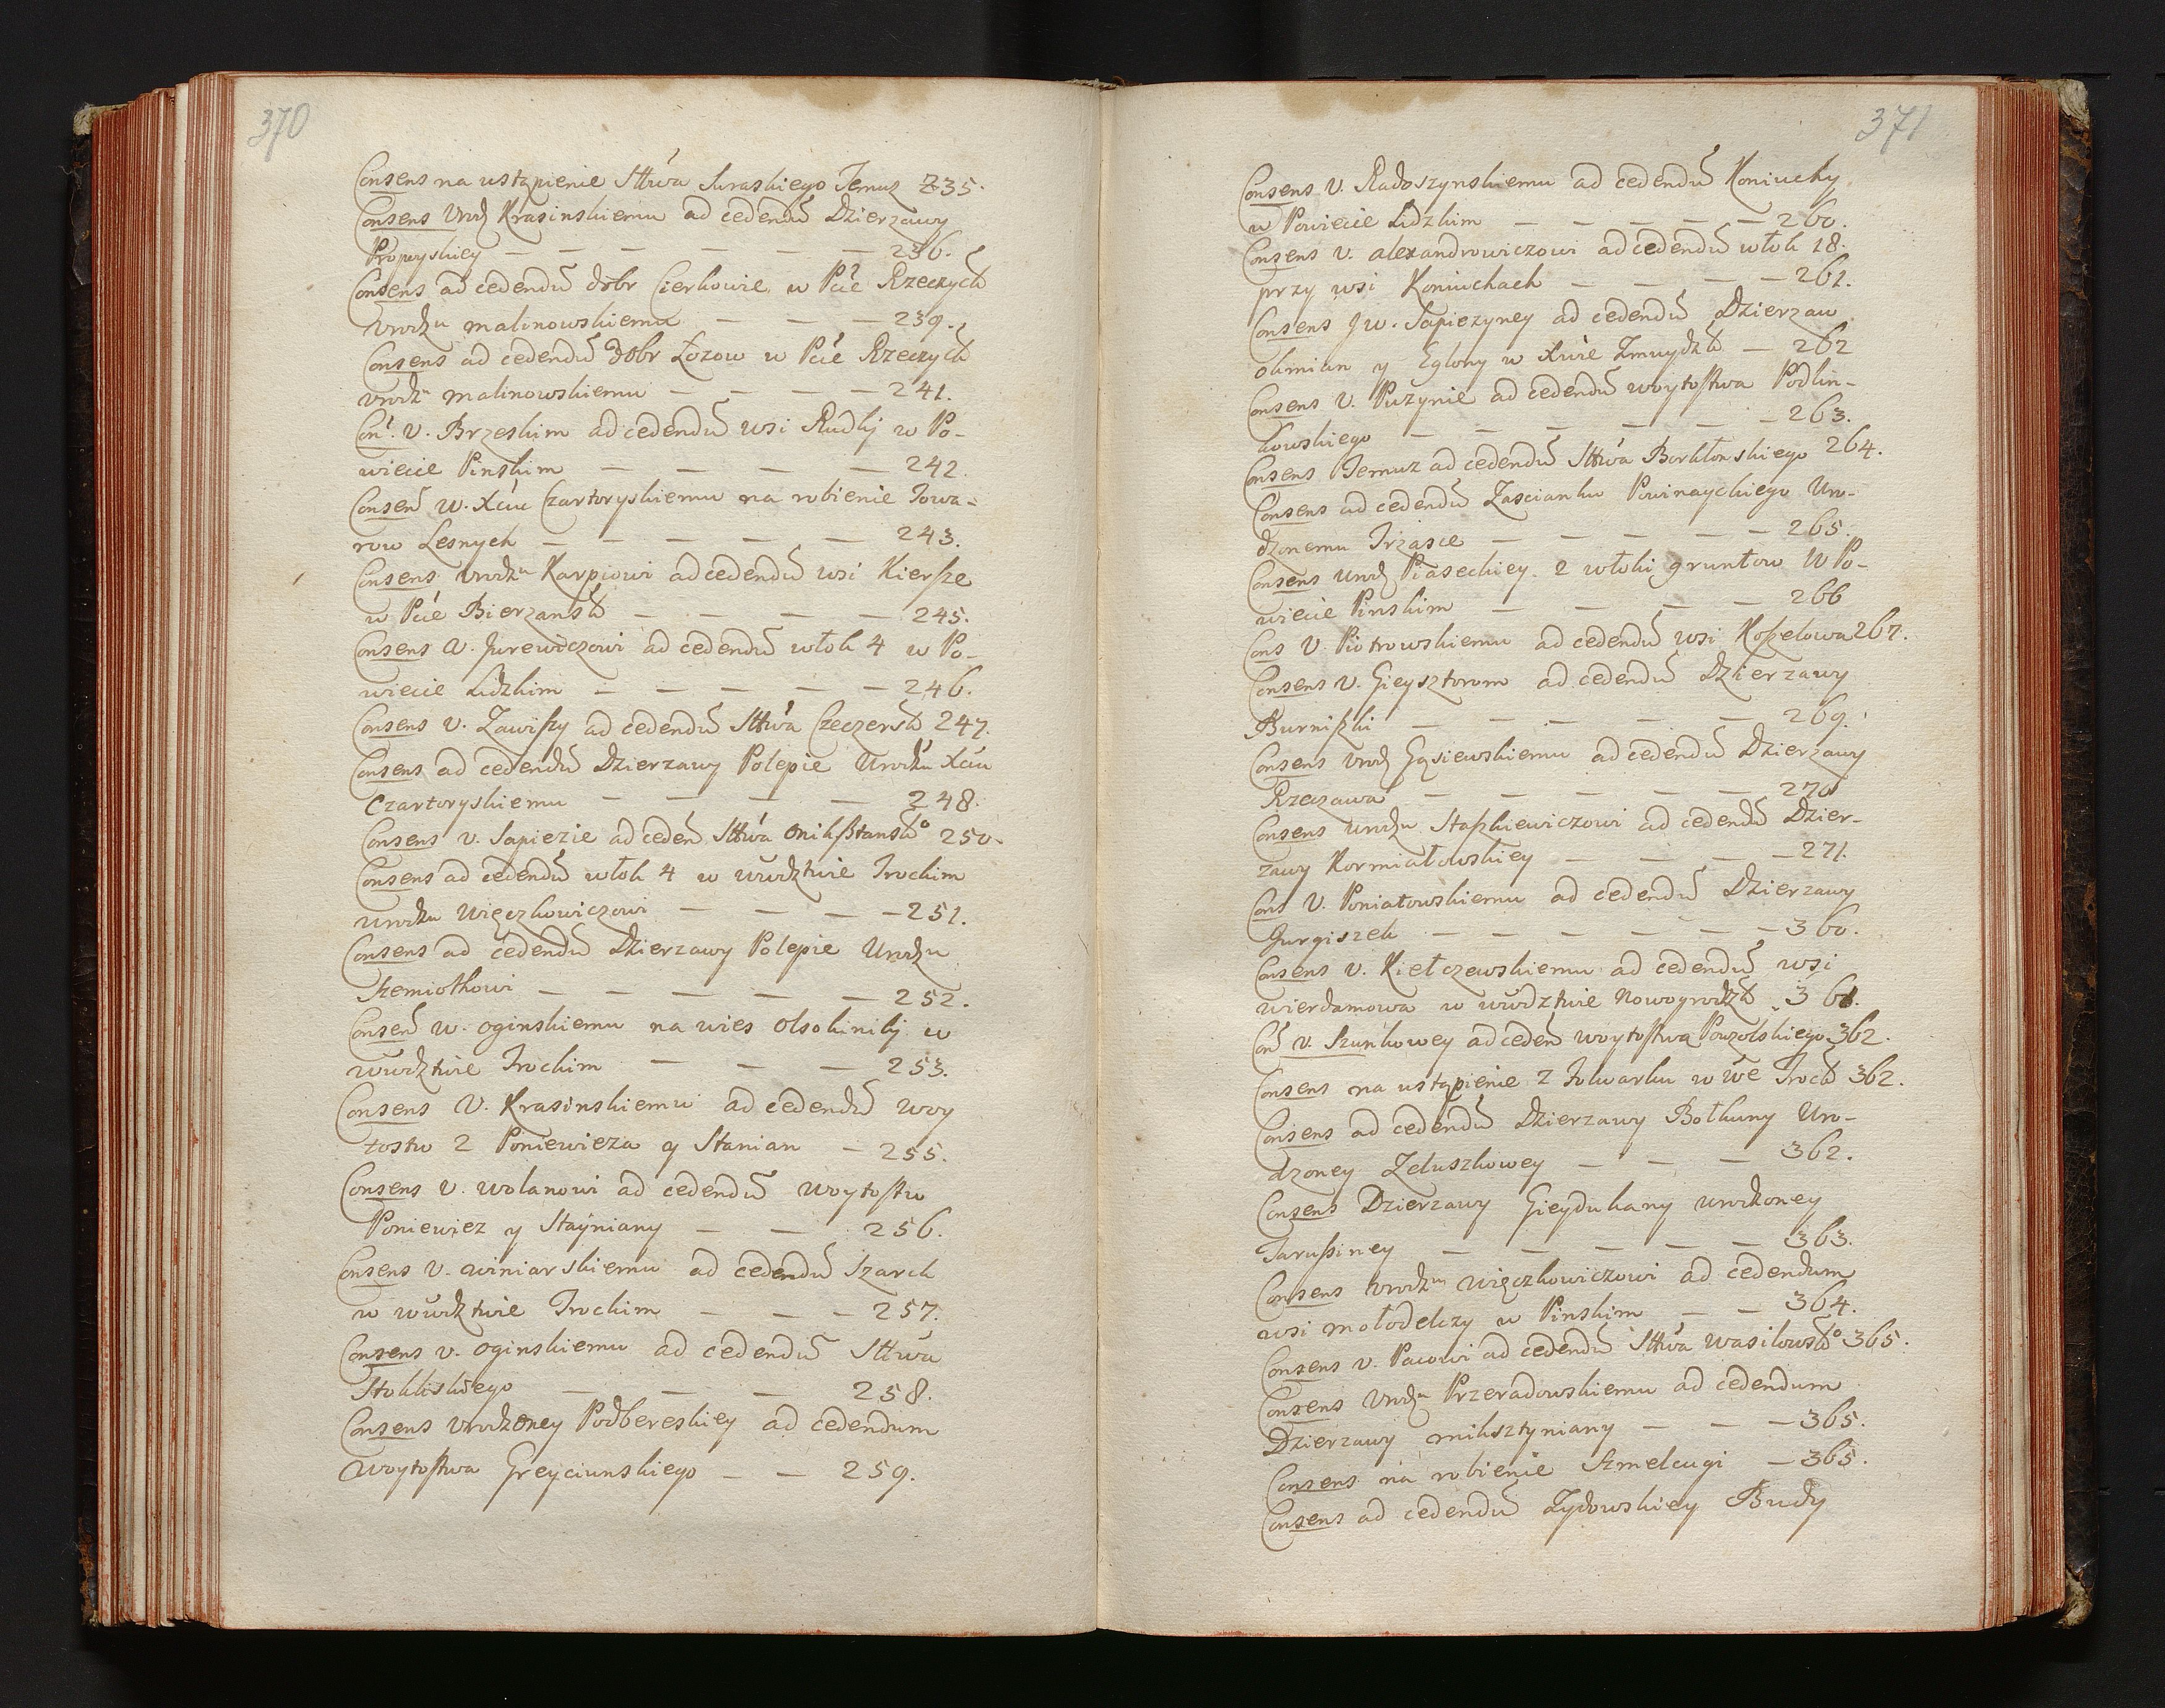 370
Consens na ustąpienie Sttwa Suraskiego Temuz 235.
Consens Urodz Krasinskiemu ad cedendū Dzierzawy
Propoyskiey — — — — — — 236.
Consens ad cedendū dobr Cierkowie w Pcie Rzeczyck
Urodzu malinowskiemu — — — 239.
Consens ad cedendū dobr Łozow w Pcie Rzeczyck
Urodzu malinowskiemu — — — — 241.
Cons. U. Brzeskim ad cedendū wsi Rudki w Po-
wiecie Pinskim — — — — — 242.
Consen W. Xciu Czartoryskiemu na robienie Towa-
row Lesnych — — — — — — 243.
Consens Urodzu Karpiowi ad cedendū wsi Kiersze
w Pcie Bierzansk — — — — — 245.
Consens U. Jurewiczowi ad cedendū włok 4 w Po-
wiecie Lidzkim — — — — — 246.
Consens U. Zawiszy ad cedendū Sttwa Czeczersk 247.
Consens ad cedendū Dzierzawy Polepie Urodzu Xciu
Czartoryskiemu — — — — — 248.
Consens U. Sapiezie ad ceden Sttwa Oniksztansko 250.
Consens ad cedendū włok 4 w wwdztwie Trockim
Urodzu Więczkowiczowi — — — — 251.
Consens ad cedendū Dzierzawy Polepie Urodzu
Szemiotkowi — — — — — 252.
Consen W. Oginskiemu na wies Olsokiniki w
wwdztwie Trockim — — — 253.
Consens U. Krasinskiemu ad cedendū woy
tostw 2 Poniewieza y Stanian — 255.
Consens U. wolanowi ad cedendū woytostw
Poniewiez y Stayniany — — 256.
Consens U. winiarskiemu ad cedendū Szarek
w wwdztwie Trockim — — — 257.
Consens U. Oginskiemu ad cedendū Sttwa
Stokliskiego — — — 258.
Consens Urodzoney Podbereskiey ad cedendum
Woytostwa Greyciunskiego — — 259.
371
Consens U. Radoszynskiemu ad cedendū Koniuchy
w Powiecie Lidzkim — — — — — 260.
Consens U. alexandrowiczowi ad cedendū włok 18.
przy wsi Koniuchach — — — — 261.
Consens JW. Sapiezyney ad cedendū Dzierzaw
Okmian y Eglony w Xtwie Zmuydzk — 262
Consens U. Puzynie ad cedendū woytostwa Podlin-
kowskiego — — — — — — 263.
Consens Temuz ad cedendū Sttwa Borkłonskiego 264.
Consens ad cedendū Zascianku Powinayckiego Uro-
dzonemu Trzasce — — — — — 265.
Consens Urodz Piaseckiey 2 włoki gruntow w Po-
wiecie Pinskim — — — — 266
Cons U. Piotrowskiemu ad cedendū wsi Koszelowa 267.
Consens U. Gieysztorom ad cedendū Dzierzawy
Burniszki — — — — — 269.
Consens Urodz Gąsiewskiemu ad cedendū Dzierzawy
Rzeczawa — — — — — 270
Consens Urodzu Staszkiewiczowi ad cedendū Dzier-
zawy Kormiałowskiey — — — — 271.
Cons U. Poniatowskiemu ad cedendū Dzierzawy
Gurgiszek — — — — — — 360.
Consens U. Kiełczewskiemu ad cedendū wsi
wierdamowa w wwdztwie Nowogrodzk 361.
Con U. Szunkowey ad ceden woytostwa Powzolskiego 362.
Consens na ustąpienie 2 folwarku w we Trock 362.
Consens ad cedendū Dzierzawy Bołkuny Uro-
dzoney Zeluszkowey — — — 362.
Consens Dzierzawy Gieydukany urodzoney
Jarussiney — — — — — 363.
Consens Urodzu Więczkowiczowi ad cedendum
wsi mołodelczy w Pinskim — — 364.
Consens U. Pacowi ad cedendū Sttwa Wasilowsko 365.
Consens Urodzu Przeradowskiemu ad cedendum
Dzierzawy miksztyniany — — — 365.
Consens na robienie Szmelcugi — 365.
Consens ad cedendū Zydowskiey Budy